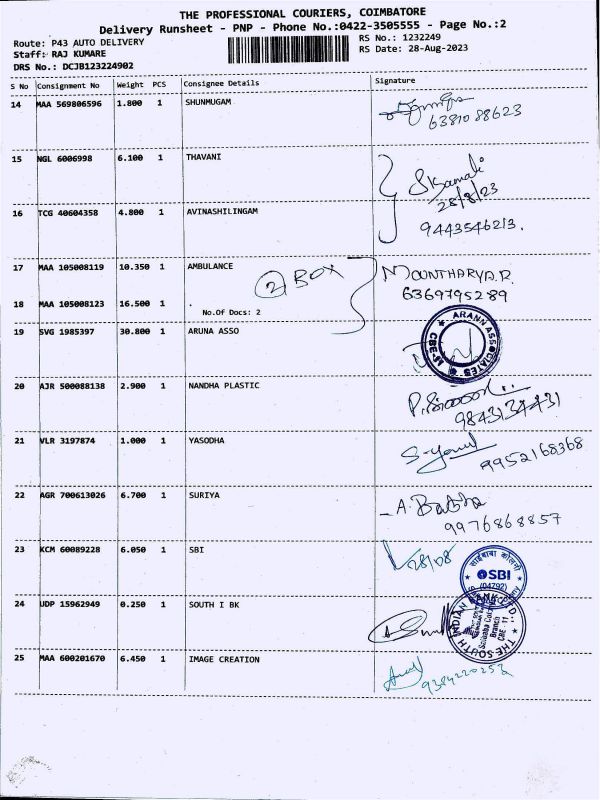 THE PROFESSIONAL COURIERS, COIMBATORE
Delivery Runsheet - PNP - Phone No.:0422-3505555 - Page No.:2
Route: P43 AUTO DELIVERY
RS No.: 1232249
Staff: RAJ KUMARE
RS Date: 28-Aug-2023
DRS No.: DCJB123224902
S No Consignment No Weight PCS Consignee Details Signature
14 MAA 569806596 1.800 1 SHUNMUGAM
6381088623
15 NGL 6006998 6.100 1 THAVANI
28/8/23
16 TCG 40604358 4.800 1 AVINASHILINGAM
9443546213.
17 MAA 105008119 10.350 1 AMBULANCE
2 BOX
MOUNTHARYA.R.
6369795289
18 MAA 105008123 16.500 1 .
No.Of Docs: 2
19 SVG 1985397 30.800 1 ARUNA ASSO
ARANN ASSOCIATES
20 AJR 500088138 2.900 1 NANDHA PLASTIC
9843134431
21 VLR 3197874 1.000 1 YASODHA
9952168368
22 AGR 700613026 6.700 1 SURIYA
9976868857
23 KCM 60089228 6.050 1 SBI
28/08
साईबाबा कोलनी
SBI
(04792)
24 UDP 15962949 0.250 1 SOUTH I BK
THE SOUTH INDIAN BANK LTD.
Branch
CBE - 11
25 MAA 600201670 6.450 1 IMAGE CREATION
9384220252